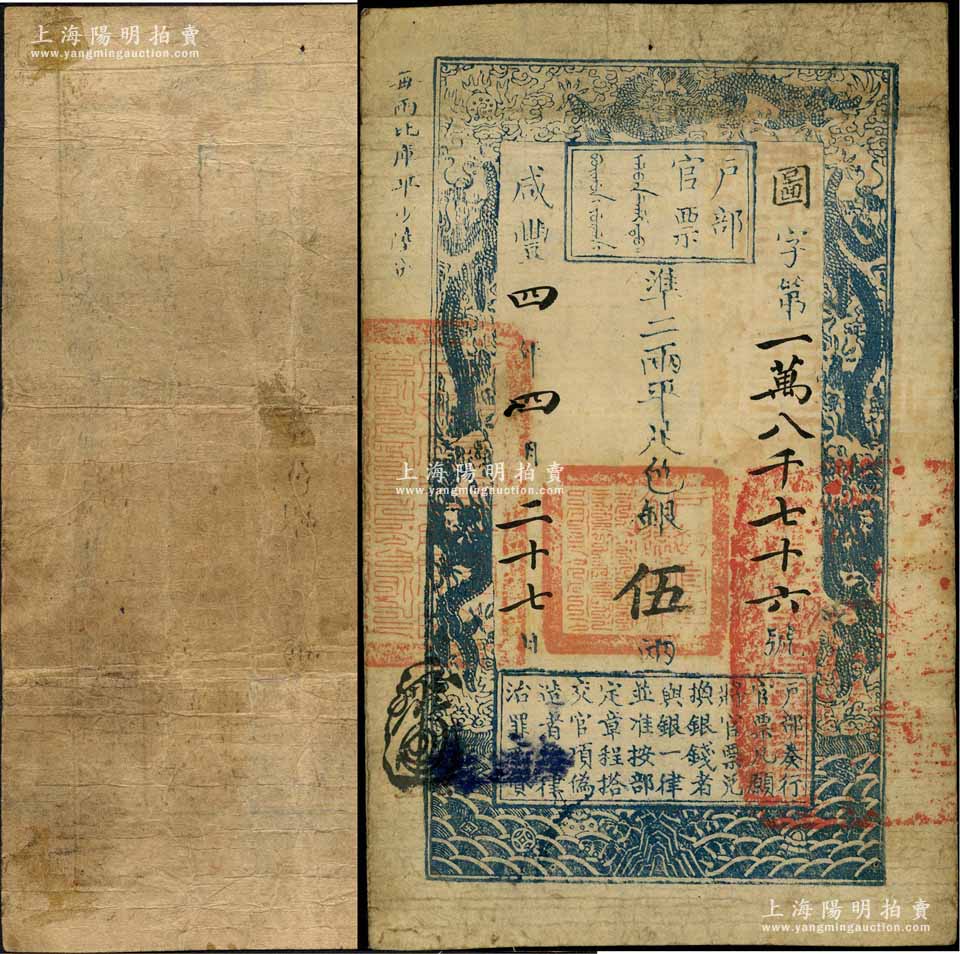 上海陽明拍賣
www.yangmingauction.com
每兩比庫平少陸分
戶部
官票
圖字第一萬八千七十六號
準二兩平足色銀伍兩
咸豐四年四月二十七日
戶部奏行
官票凡願
將官票兌
換銀錢者
與銀一律
並准按部
定章程搭
交官項偽
造者律
治罪
上海陽明拍賣
www.yangmingauction.com
上海陽明拍賣
www.yangmingauction.com